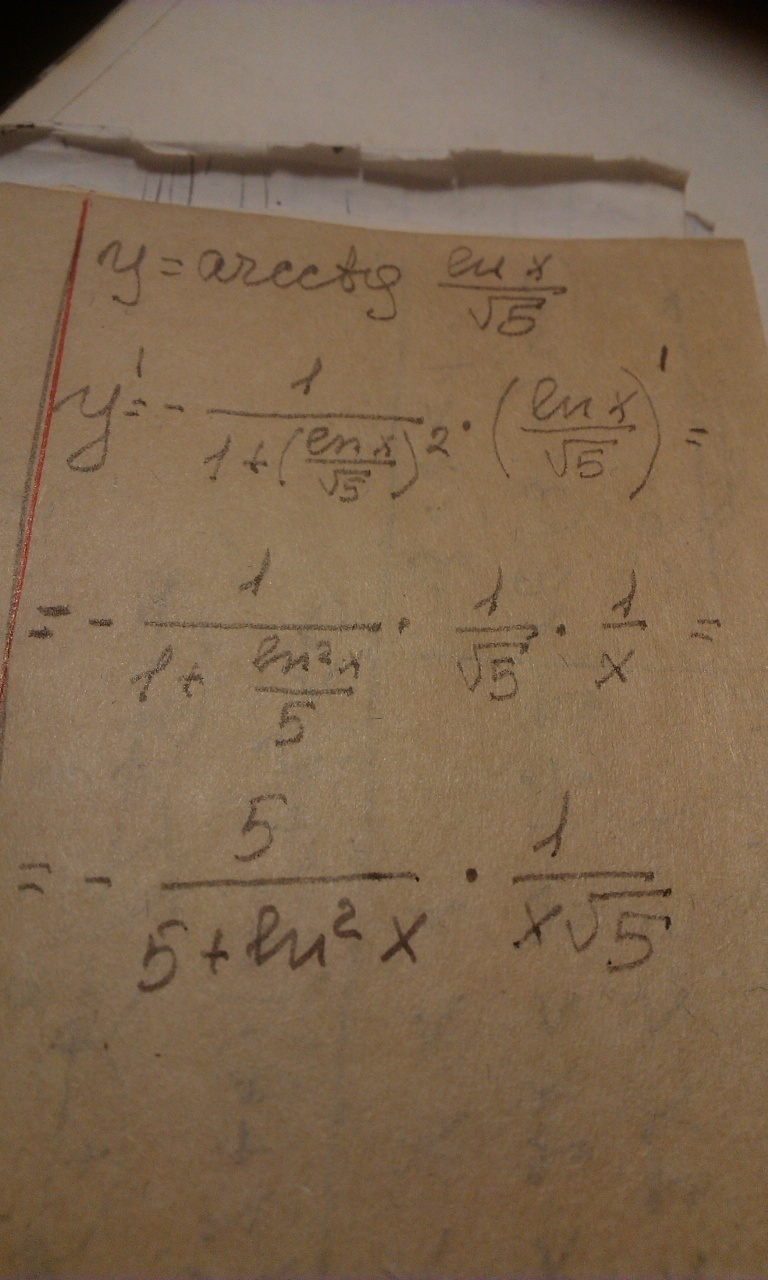 y = arcctg ln x / √5
y' = - 1 / (1 + (ln x / √5)²) · (ln x / √5)' =
= - 1 / (1 + ln² x / 5) · 1 / √5 · 1 / x =
= - 5 / (5 + ln² x) · 1 / (x√5)